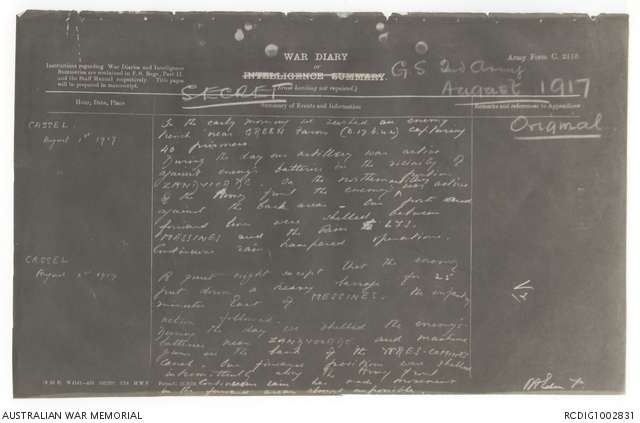 Instructions regarding War Diaries and Intelligence
Summaries are contained in F.S. Regs., Part II
and the Staff Manual respectively. Title pages
will be prepared in manuscript.
WAR DIARY
OR
INTELLIGENCE SUMMARY.
(Erase heading not required.)
SECRET
Army Form C. 2118
G.S. 2nd Army
August 1917
Original
Hour, Date, Place
Summary of Events and Information
Remarks and references to Appendices
CASSEL.
August 1st 1917
In the early morning we raided an enemy
trench near GREEN capturing
40 prisoners
During the day our artillery was active
against enemy batteries in the vicinity of
ZANDVOORDE. On the northern portion
of the Army front the enemy was active
against the back area - our front and
forward area were shelled between
MESSINES and the River LYS.
Continuous rain hampered operations.
CASSEL
August 2nd 1917
A quiet night except that the enemy
put down a heavy barrage for 25
minutes East of MESSINES. No infantry
action followed.
During the day we shelled the enemy's
batteries near ZANDVOORDE and machine
guns on the bank of the YPRES-COMINES
Canal. Our forward position was shelled
intermittently along the Army front
Continuous rain has made movement
in the forward area almost impossible.
AUSTRALIAN WAR MEMORIAL
RCDIG1002831